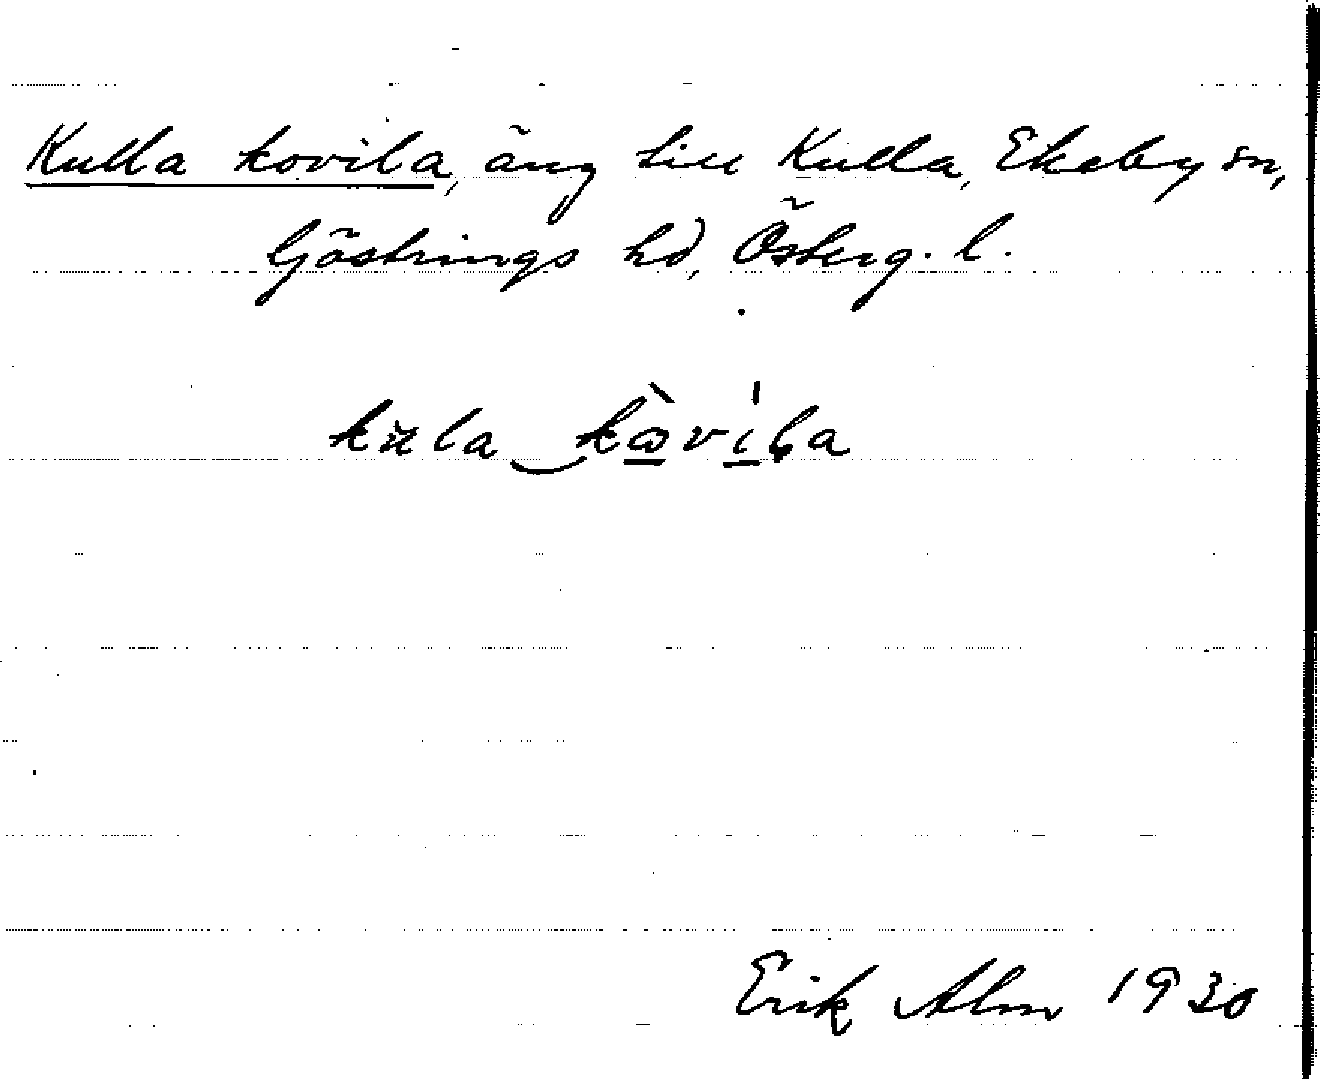 Kulla kovila, äng till Kulla, Ekeby sn,
Göstrings hd, Österg. l.
kula kòvila
Erik Alm 1930